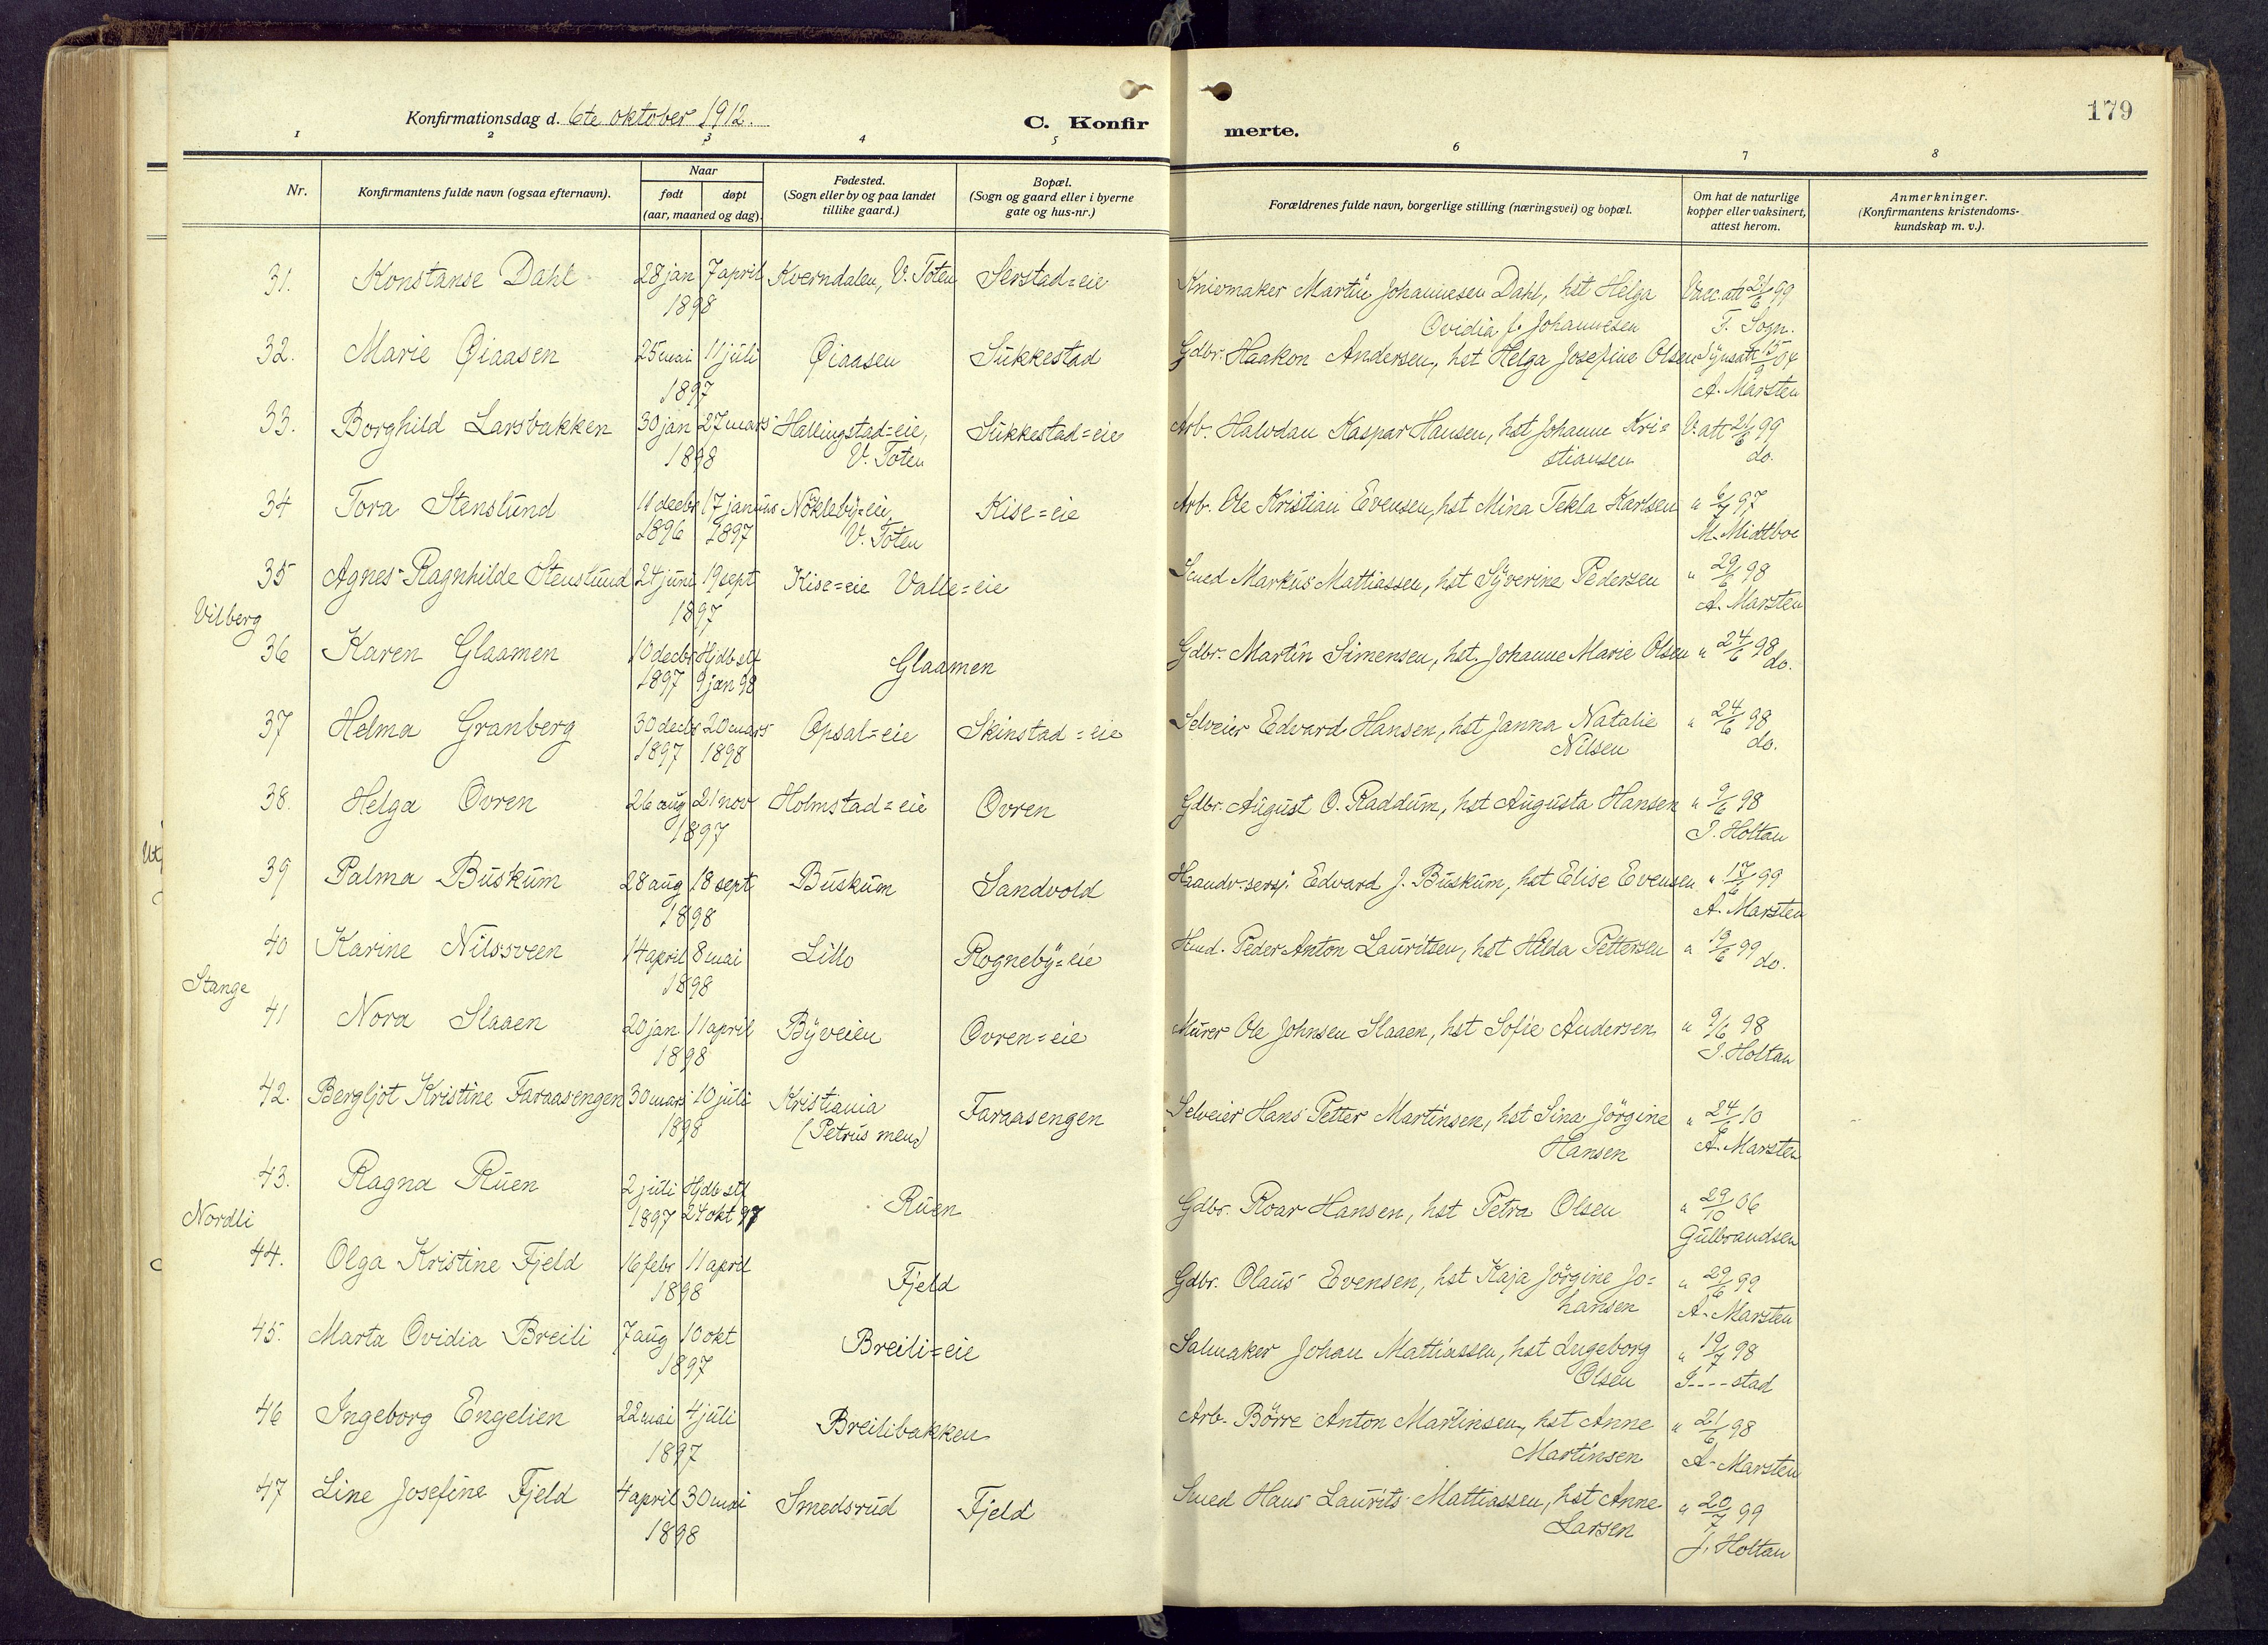 179
Konfirmationsdag d. 6te oktober 1912.
C. Konfir
merte.
1 2 3 4 5 6 7 8
Nr.
Konfirmantens fulde navn (ogsaa efternavn).
Naar
født døpt
(aar, maaned og dag).
Fødested.
(Sogn eller by og paa landet
tillike gaard.)
Bopæl.
(Sogn og gaard eller i byerne
gate og hus-nr.)
Forældrenes fulde navn, borgerlige stilling (næringsvei) og bopæl.
Om hat de naturlige
kopper eller vaksinert,
attest herom.
Anmerkninger.
(Konfirmantens kristendoms-
kundskap m. v.).
31. Konstanse Dahl 28 jan 7 april Kverndalen, V. Toten Serstad=eie Knivmaker Martin Johannesen Dahl, hst Helga Vacc.att 21/6 99
1898 Ovidia f. Johannesen T. Sogn.
32. Marie Øiaasen 25 mai 11 juli Øiaasen Sukkestad Gdbr. Haakon Andersen, hst Helga Josefine Olsen Synsatt 15/9 04
1897 A. Marsten
33. Borghild Larsbakken 30 jan 27 mars Hallingstad=eie, Sukkestad=eie Arb. Halvdan Kaspar Hansen, hst Johanne Kri= V.att 21/6 99
1898 V. Toten stiansen do.
34 Tora Stenslund 11 decbr 17 januus Nökleby=ei, Kise=eie Arb. Ole Kristian Evensen, hst Mina Tekla Karlsen " 6/7 97
1896 1897 V. Toten M. Midtboe
35 Agnes Ragnhilde Stenslund 24 juni 19 sept Kise=eie Valle=eie Smed Markus Mattiassen, hst Syverine Pedersen " 29/6 98
Vilberg 1897 A. Marsten
36 Karen Glaamen 10 decbr Hjdb stf Glaamen Gdbr. Martin Simensen, hst. Johanne Marie Olsen " 24/6 98
1897 9 jan 98 do.
37 Helma Granberg 30 decbr 20 mars Opsal=eie Skinstad=eie Selveier Edvard Hansen, hst Janna Natalie " 24/6 98
1897 1898 Nilsen do.
38. Helga Ovren 26 aug 21 nov Holmstad=eie Ovren Gdbr. August O. Raddum, hst Augusta Hansen " 9/6 98
1897 I. Holtan
39 Palma Buskum 28 aug 18 sept Buskum Sandvold Haandv.sersj. Edvard J. Buskum, hst Elise Evensen " 17/6 99
1898 A. Marsten
40 Karine Nilssveen 14 april 8 mai Lillo Rogneby=eie Hmd. Peder Anton Lauritsen, hst Hilda Pettersen " 19/6 99
Stange 1898 do.
41 Nora Slaaen 20 jan 11 april Byveien Ovren=eie Murer Ole Johnsen Slaaen, hst Sofie Andersen " 9/6 98
1898 I. Holtan
42. Bergljot Kristine Faraasengen 30 mars 10 juli Kristiania Faraasengen Selveier Hans Petter Martinsen, hst Sina Jörgine " 24/6 10
1898 (Petrus men) Hansen A. Marsten
43. Ragna Ruen 2 juli Hjdb stf Ruen Gdbr. Roar Hansen, hst Petra Olsen " 29/10 06
Nordli 1897 24 okt 97 Gulbrandsen
44. Olga Kristine Fjeld 16 febr 11 april Fjeld Gdbr. Olaus Evensen, hst Kaja Jörgine Jo= " 29/6 99
1898 hansen A. Marsten
45. Marta Ovidia Breili 7 aug 10 okt Breili=eie Salmaker Johan Mattiassen, hst Ingeborg " 19/7 98
1897 Olsen I----stad
46 Ingeborg Engelien 22 mai 4 juli Breilibakken Arb. Börre Anton Martinsen, hst Anne " 21/6 98
1897 Martinsen A. Marsten
47 Line Josefine Fjeld 4 april 30 mai Smedsrud Fjeld Smed Hans Laurits Mattiassen, hst Anne " 20/7 99
1898 Larsen J. Holtan